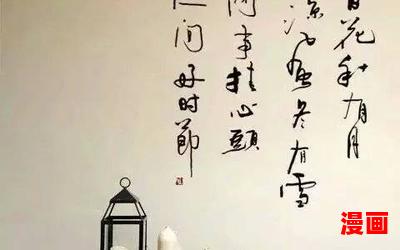 百花秋有月
凉风冬有雪
闲事挂心頭
人间好时節
漫画